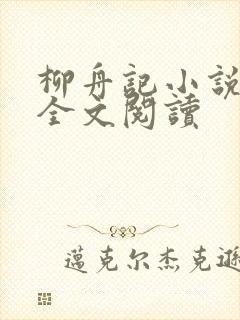 柳舟記小說
全文閱讀
邁克尔杰克遜